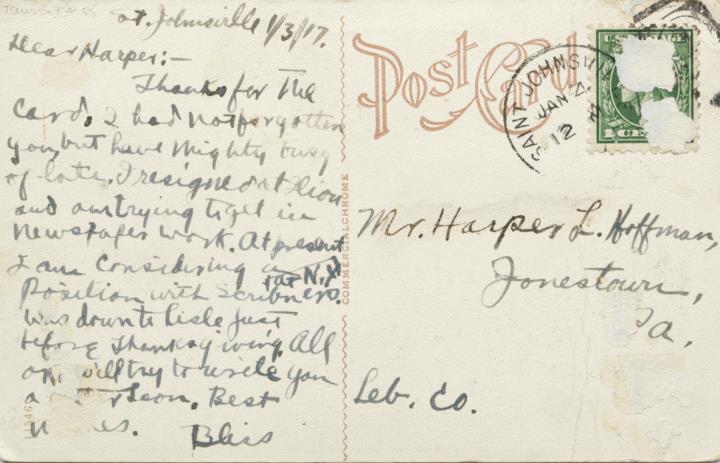 St. Johnsville 1/3/17.
Dear Harper:-
Thanks for the
card. I had not forgotten
you, but have mighty busy
of late. I resigned at
and am trying to get in
newspaper work. At present
I am considering a
at N.Y.
position with Scribners.
Was down to Lisle just
before Thanksgiving. All
will try to write you
soon. Best
Bliss
Post Card
COMMERCIALCHROME
SAINT JOHNSV
JAN 4
12 M
1 CE
Mr. Harper L. Hoffman,
Jonestown,
Pa.
Leb. Co.